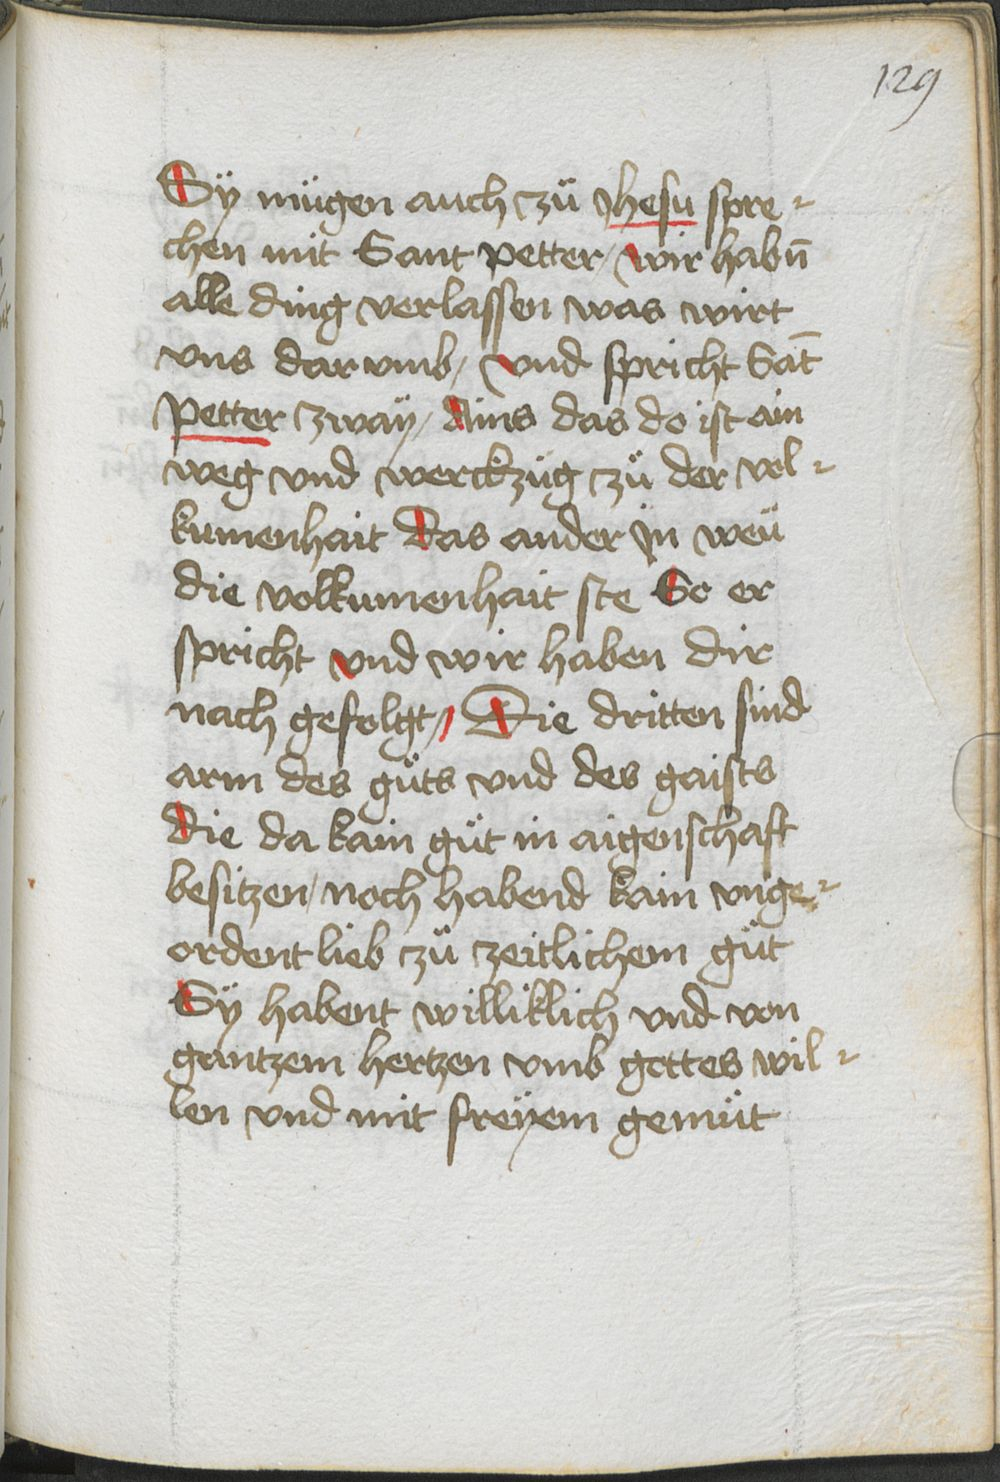 129
Sÿ mügen auch zü Jhesu spre-
chen mit Sant petter / wir habn̄
alle ding verlassen was wirt
vns dar vmb / vnd spricht Sāt
petter zwaÿ / Ains das do ist ain
weg vnd werckzüg zü der vol-
kumenhait Das ander in weü
die volkumenhait ste So er
spricht vnd wir haben dir
nach gefolgt / Die dritten sind
arm des güts vnd des gaists
Die da kain güt in aigenschaft
besitzen / noch habend kain vnge-
ordent lieb zü zeitlichem güt
Sÿ habent williklich vnd von
gantzem hertzen vmb gottes wil-
len vnd mit freÿem gemüt